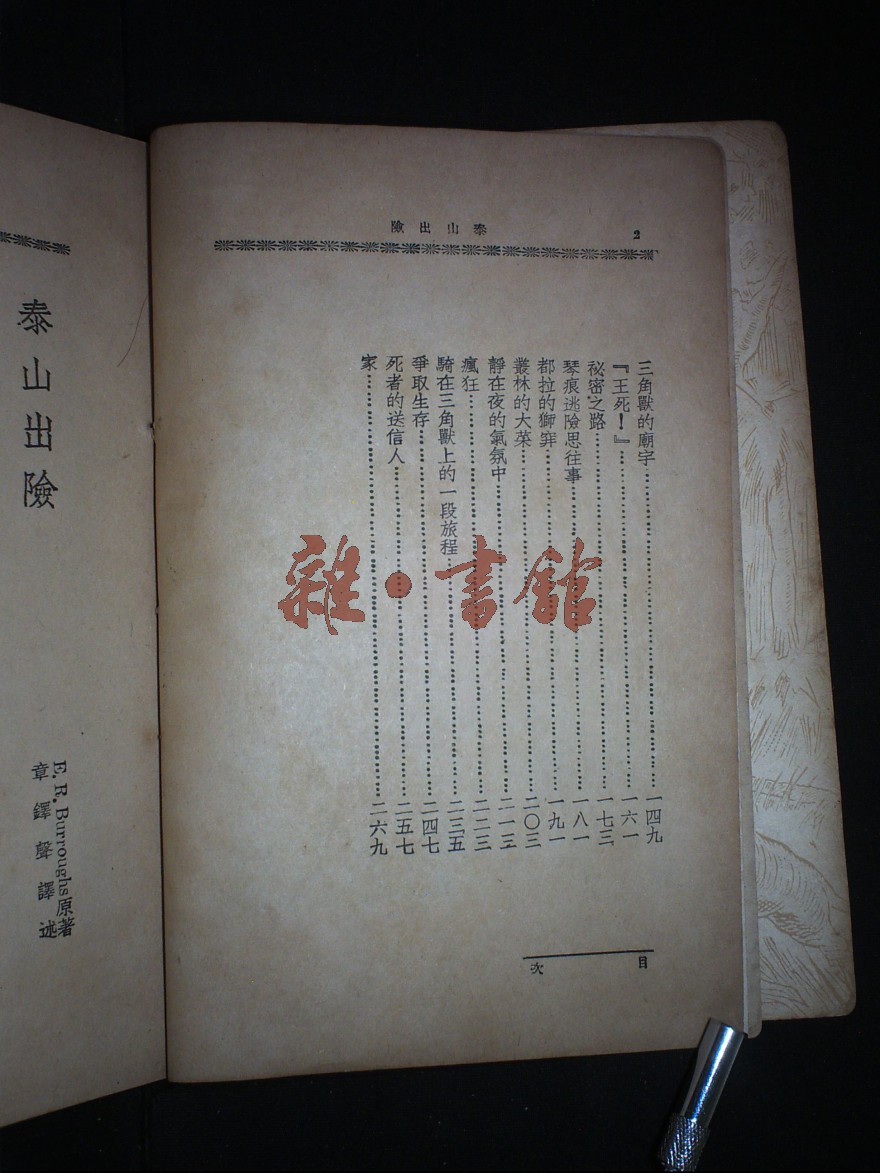 泰山出險
2
三角獸的廟宇 一四九
『王死！』 一六一
祕密之路 一七三
琴痕逃險思往事 一八一
都拉的獅穽 一九一
叢林的大菜 二〇三
靜在夜的氣氛中 二一三
瘋狂 二二三
騎在三角獸上的一段旅程 二三五
爭取生存 二四七
死者的送信人 二五七
家 二六九
目次
雜·書館
泰山出險
E. R. Burroughs原著
章鐸聲譯述